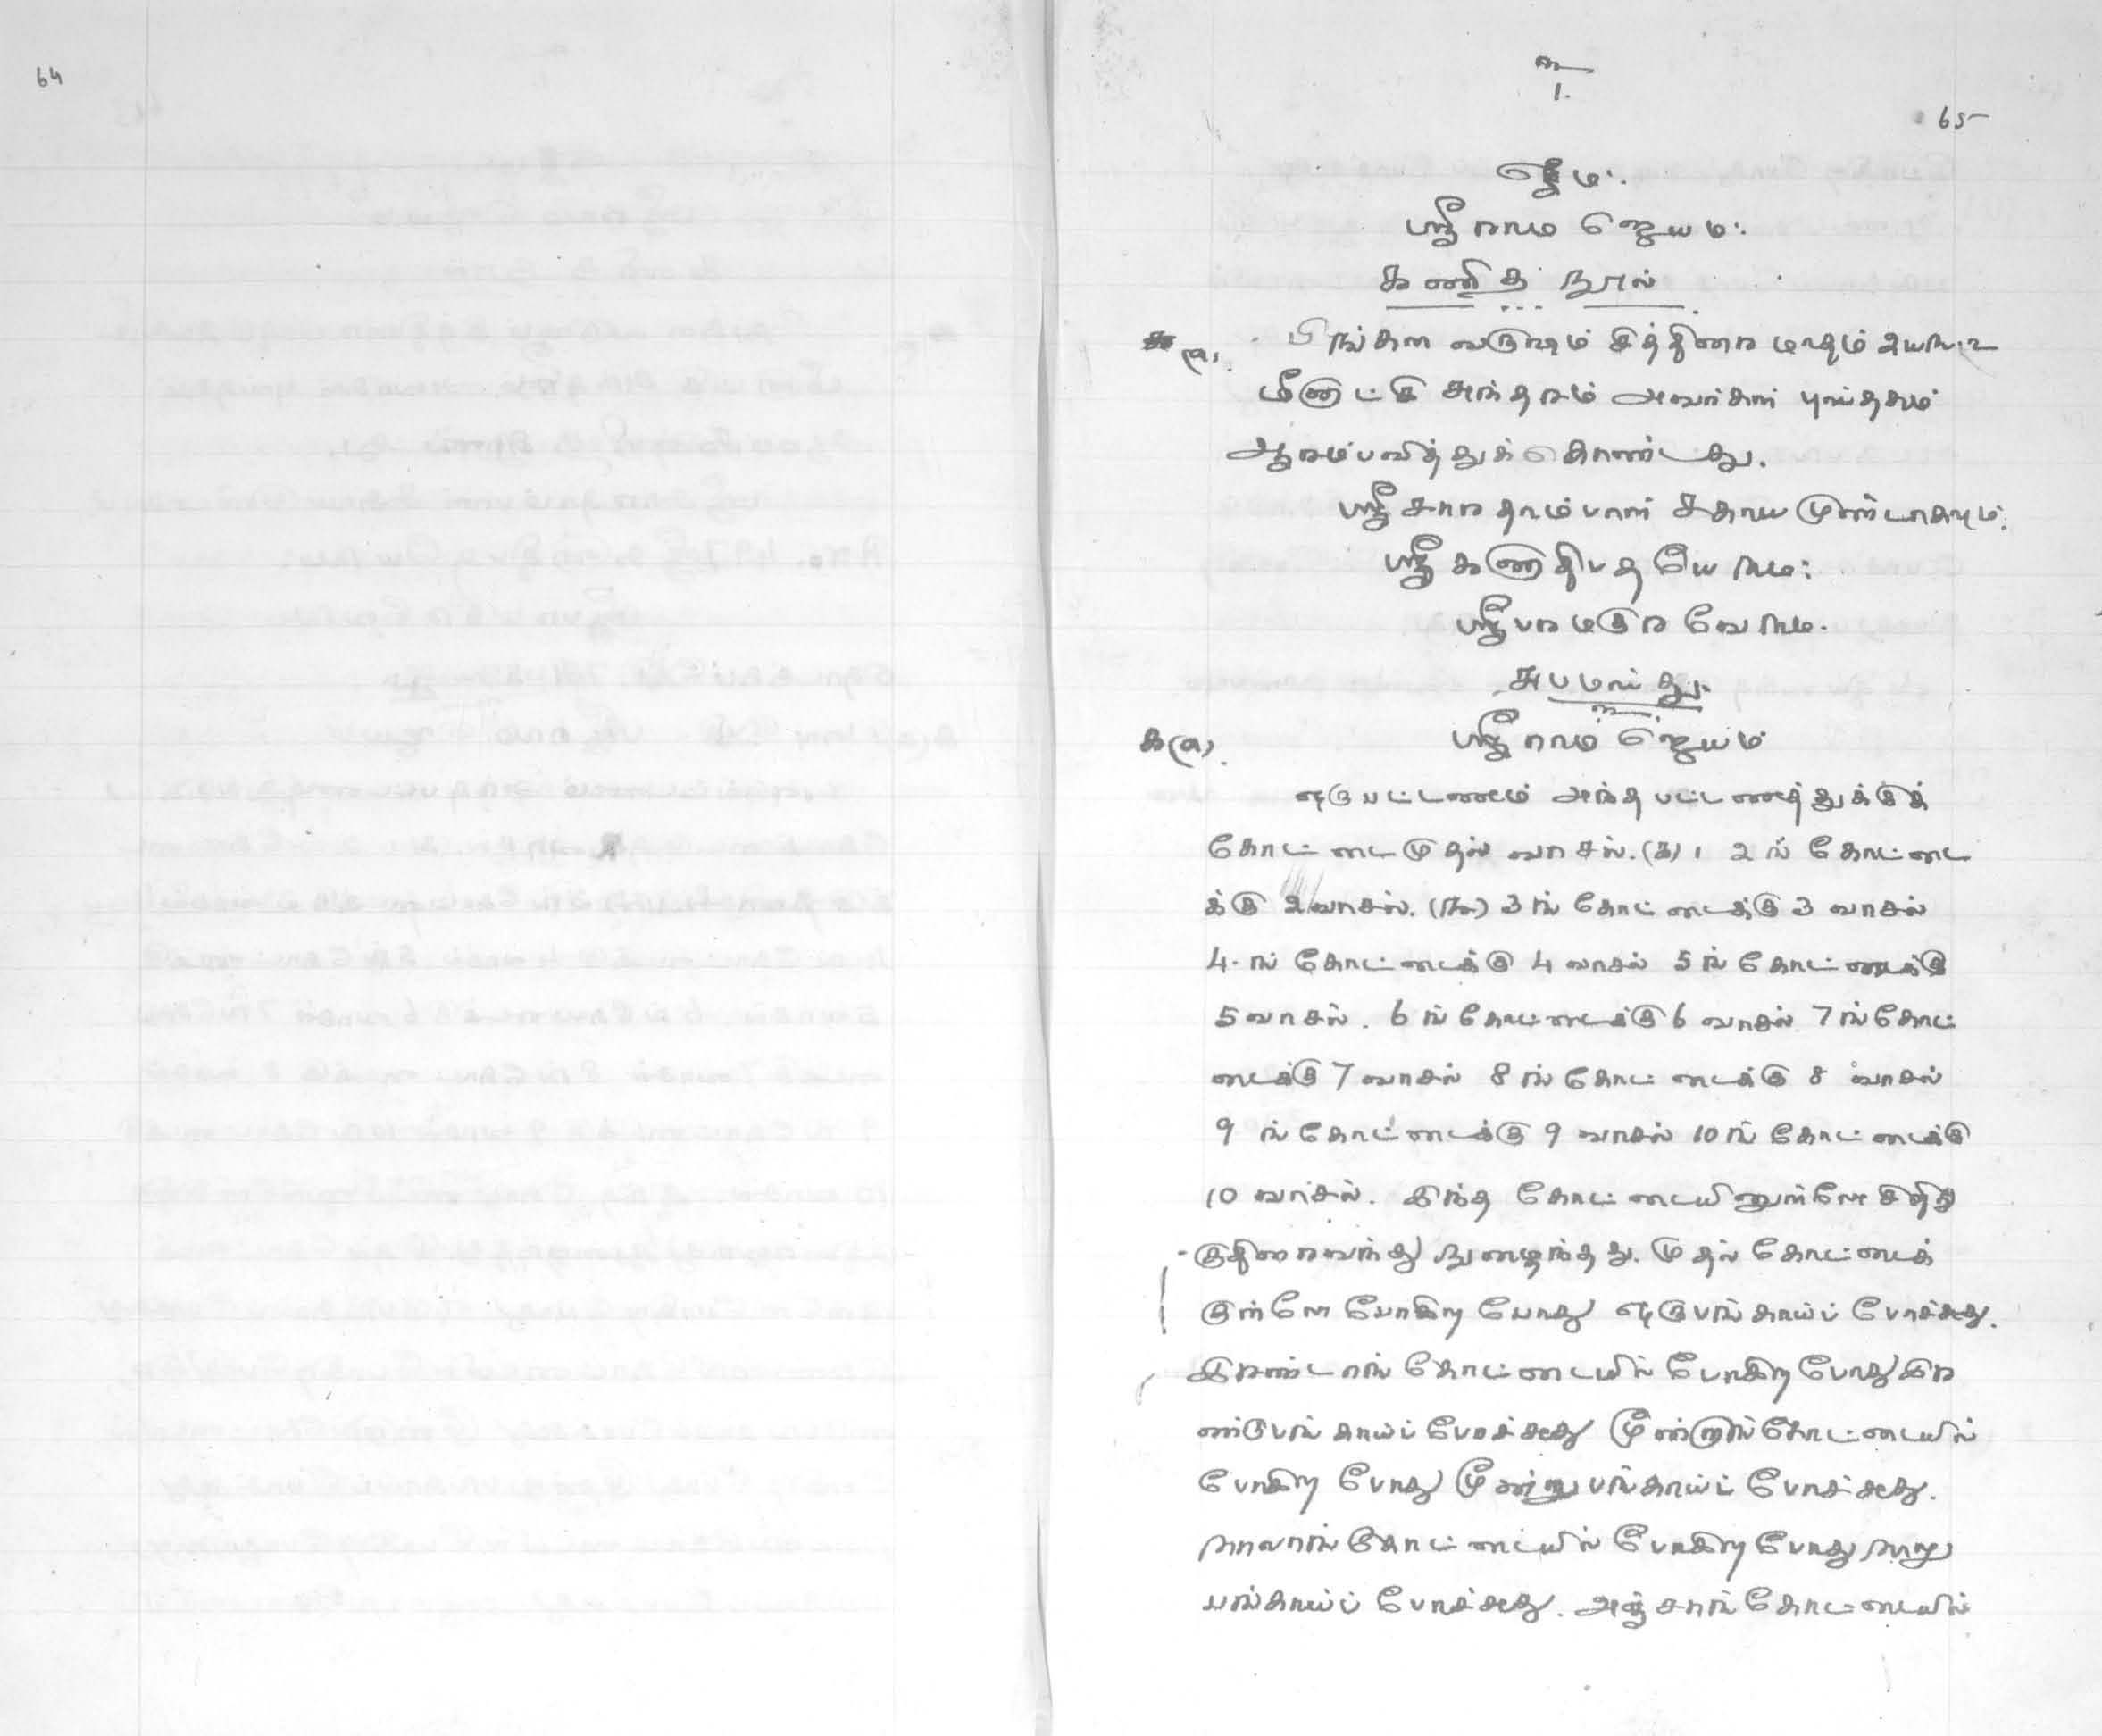 64
உ
1.
65
ஸ்ரீராம ஜெயம்.
கணித நூல்
பிங்கள வருஷம் சித்திரை மாதம்
மீனாட்சி சுந்தரம் அவர்கள் புஸ்தகம்
ஆரம்பவித்துக்கொண்டது.
ஸ்ரீசாரதாம்பாள் சகாய முண்டாகவும்.
ஸ்ரீகணாதிபதயே நம:
ஸ்ரீபரமகுரவே நம.
சுபமஸ்து.
ஸ்ரீராம ஜெயம்
ஒரு பட்டணம் அந்த பட்டணத்துக்குக்
கோட்டை முதல் வாசல். (க) 1 2 ங் கோட்டை
க்கு 2 வாசல். (௩) 3 ங் கோட்டைக்கு 3 வாசல்
4. ங் கோட்டைக்கு 4 வாசல் 5 ங் கோட்டைக்கு
5 வாசல். 6 ங் கோட்டைக்கு 6 வாசல் 7 ங் கோட்
டைக்கு 7 வாசல் 8 ங் கோட்டைக்கு 8 வாசல்
9 ங் கோட்டைக்கு 9 வாசல் 10 ங் கோட்டைக்கு
10 வாசல். இந்த கோட்டையினுள்ளே சிறிது
குதிரை வந்து நுழைந்தது. முதல் கோட்டைக்
குள்ளே போகிற போது ஒரு பங்காய்ப் போச்சுது.
இரண்டாங் கோட்டையில் போகிற போது இர
ண்டு பங்காய்ப் போச்சுது மூன்றாங்கோட்டையில்
போகிற போது மூன்று பங்காய்ப் போச்சுது.
நாலாங்கோட்டையில் போகிற போது நாலு
பங்காய்ப் போச்சுது. அஞ்சாங் கோட்டையில்